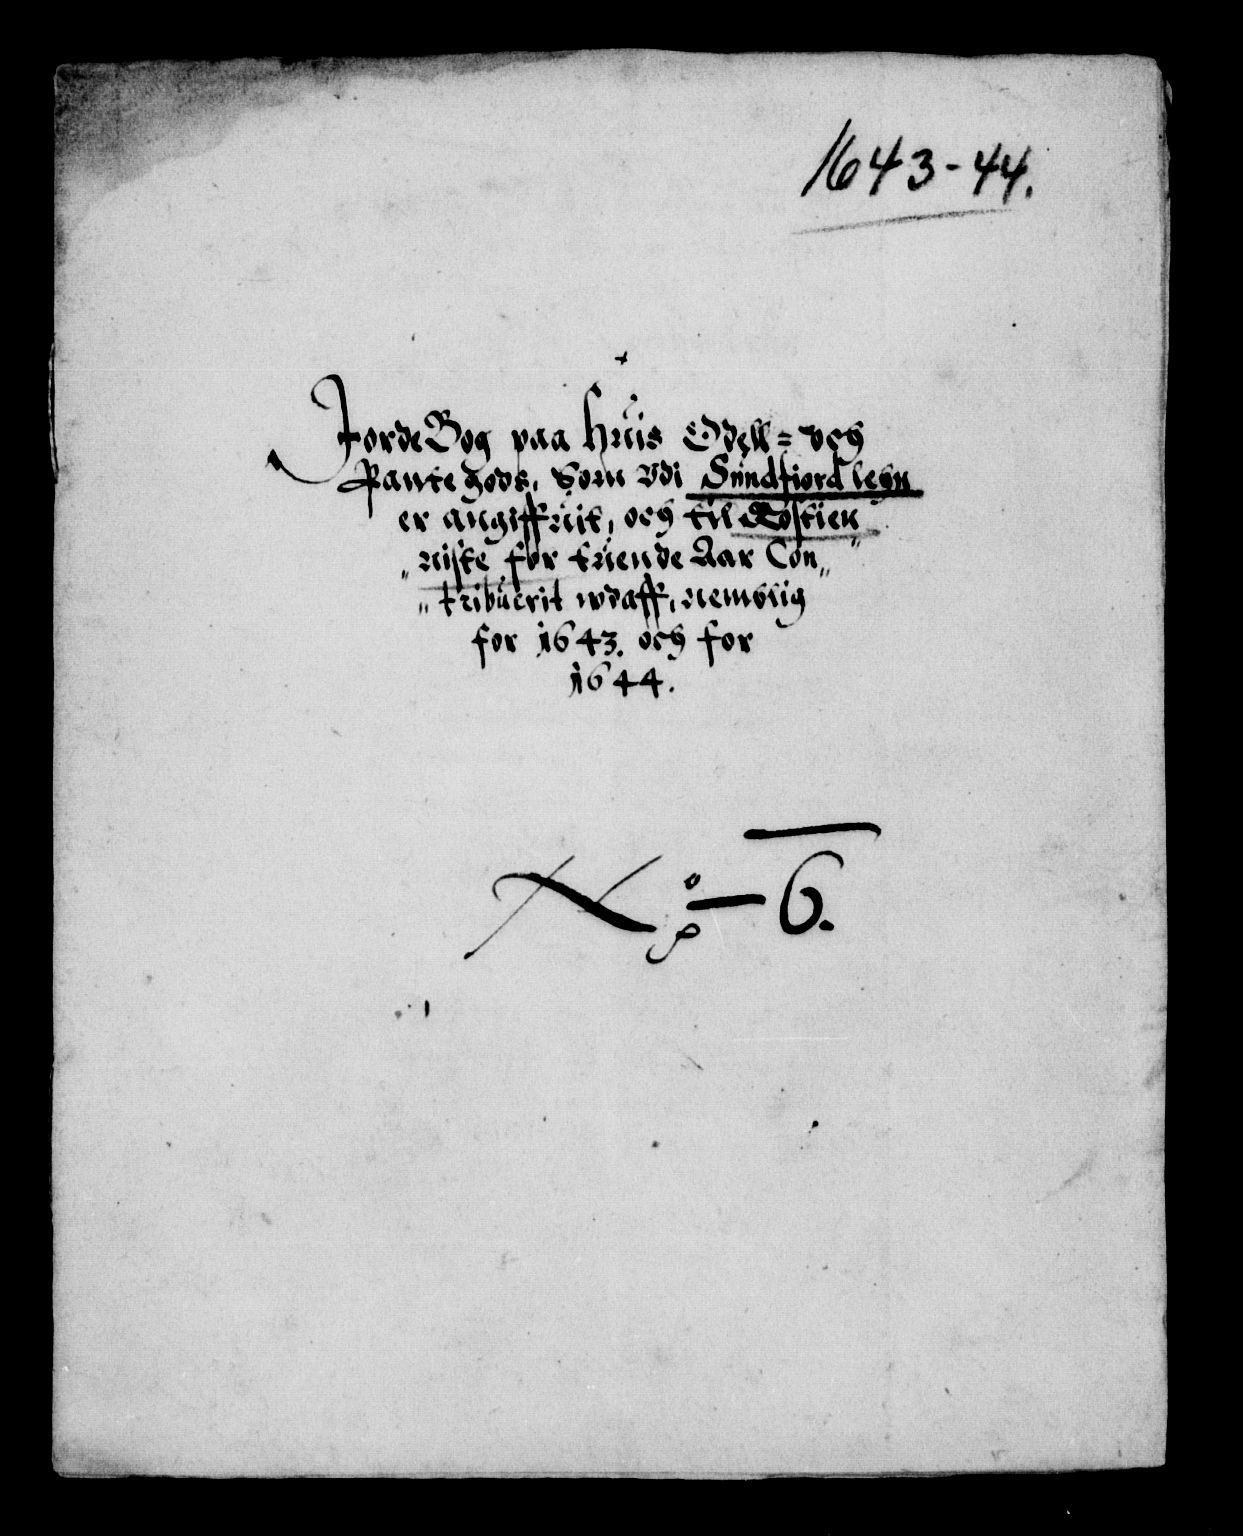 1643-44.
JordeBog paa huis Odell= och
Pante gods, Som Vdi Sundfiord lehn
er angiffuit, och til Rostien
„ niste for tuende Aar Con „
„ tribuerit wdaff, nemblig
for 1643. och for
1644.
No 6.